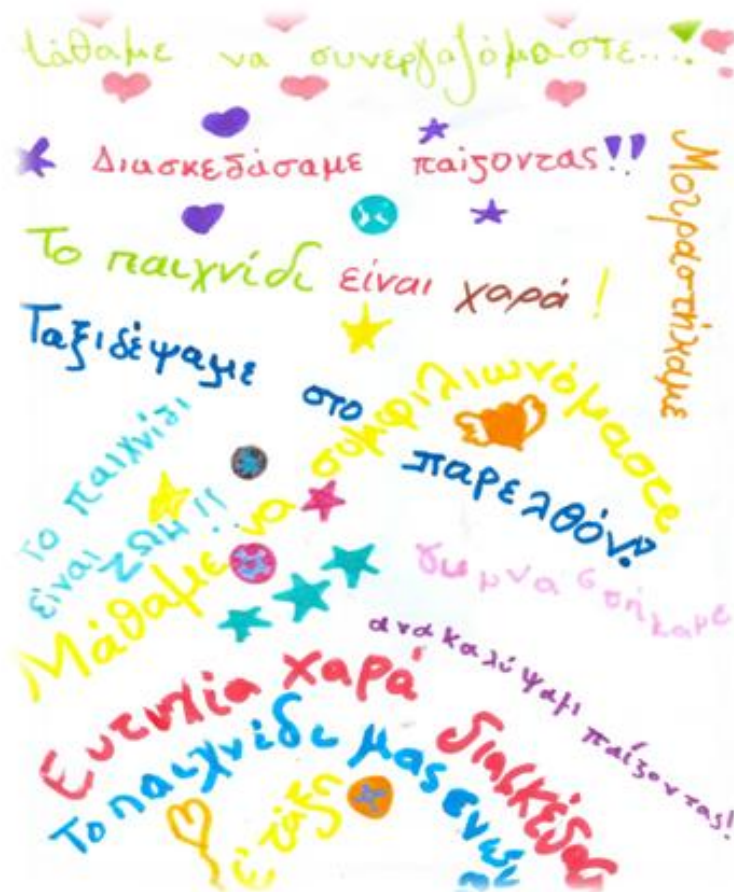 Μάθαμε να συνεργαζόμαστε....!
Διασκεδάσαμε παίζοντας!!
Μοιραστήκαμε
Το παιχνίδι είναι χαρά!
Ταξιδέψαμε στο παρελθόν!
Το παιχνίδι
είναι ζωή!!
Μάθαμε να συμφιλιωνόμαστε
γυμναστήκαμε
ανακαλύψαμε παίζοντας!
Ευτυχία χαρά διασκέδαση
Το παιχνίδι μας
Ε' τάξη